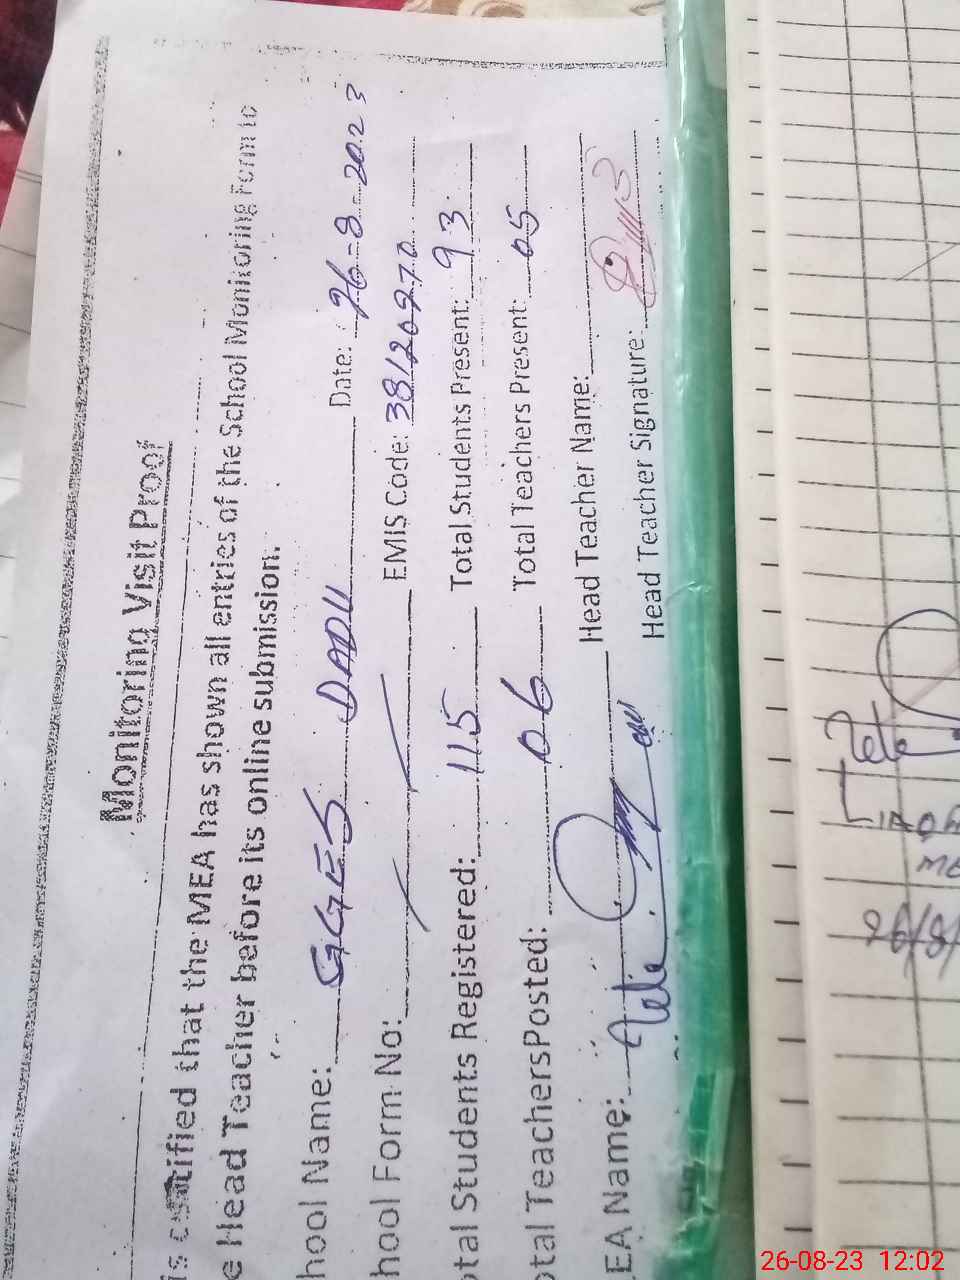 Monitoring Visit Proof
is certified that the MEA has shown all entries of the School Monitoring Form to
e Head Teacher before its online submission.
hool Name: GGES DADU Date: 26-8-2023
hool Form No: EMIS Code: 38120970
otal Students Registered: 115 Total Students Present: 93
otal Teachers Posted: 06 Total Teachers Present: 05
EA Name: Head Teacher Name:
Head Teacher Signature:
26-08-23 12:02